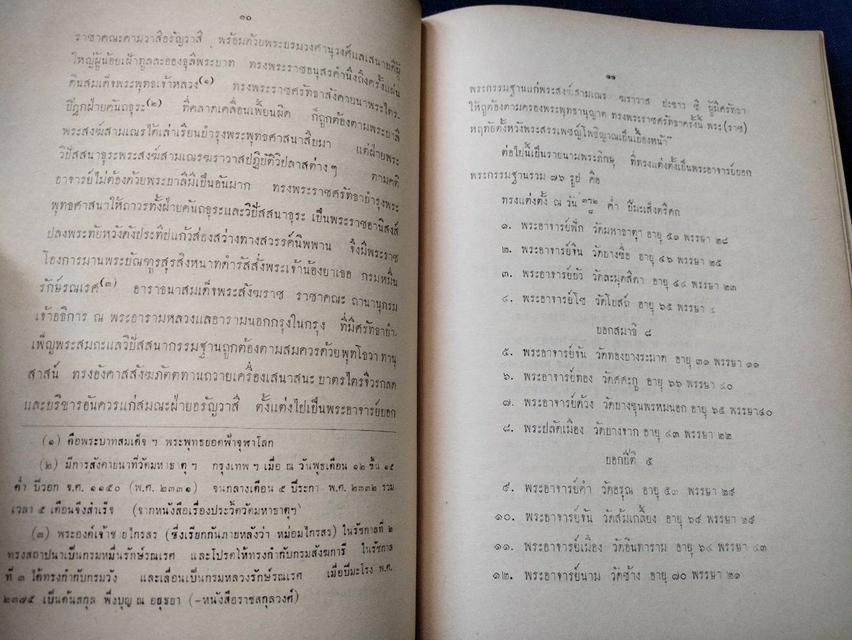 ๑๐
ราชาคณะคามวาสีอรัญวาสี พร้อมด้วยพระบรมวงศานุวงศ์แลเสนาบดีผู้
ใหญ่ผู้น้อยเฝ้าทูลละอองธุลีพระบาท ทรงพระราชอนุสรคำนึงถึงครั้งแผ่น
ดินสมเด็จพระพุทธเจ้าหลวง(๑) ทรงพระราชศรัทธาสังคายนาพระไตร-
ปิฎกฝ่ายคันถธุระ(๒) ที่คลาดเคลื่อนเพี้ยนผิด ก็ถูกต้องตามพระบาลี
พระสงฆ์สามเณรได้เล่าเรียนบำรุงพระพุทธศาสนาสืบมา แต่ฝ่ายพระ
วิปัสสนาธุระพระสงฆ์สามเณรฆราวาสปฏิบัติวิปลาสต่างๆ ตามคติ
อาจารย์ไม่ต้องด้วยพระบาลีมีเป็นอันมาก ทรงพระราชศรัทธาบำรุงพระ
พุทธศาสนาให้ถาวรทั้งฝ่ายคันถธุระและวิปัสสนาธุระ เป็นพระราชอานิสงส์
ปลงพระทัยหวังดังประทีปแก้วส่องสว่างทางสวรรค์นิพพาน จึงมีพระราช
โองการมานพระบัณฑูรสุรสิงหนาทดำรัสสั่งพระเจ้าน้องยาเธอ กรมหมื่น
รักษ์รณเรศ(๓) อาราธนาสมเด็จพระสังฆราช ราชาคณะ ถานานุกรม
เจ้าอธิการ ณ พระอารามหลวงแลอารามนอกกรุงในกรุง ที่มีศรัทธาบำ-
เพ็ญพระสมถะแลวิปัสสนากรรมฐานถูกต้องตามสมควรด้วยพุทโธวาทานุ
สาสน์ ทรงอังคาสสังฆภัตตทานถวายเครื่องเสนาสนะ บาตรไตรจีวรกลด
และบริขารอันควรแก่สมณะฝ่ายอรัญวาสี ตั้งแต่งไปเป็นพระอาจารย์บอก
(๑) คือพระบาทสมเด็จ ฯ พระพุทธยอดฟ้าจุฬาโลก
(๒) มีการสังคายนาที่วัดมหาธาตุ ฯ กรุงเทพ ฯ เมื่อ ณ วันพุธเดือน ๑๒ ขึ้น ๑๕
ค่ำ ปีวอก จ.ศ. ๑๑๕๐ (พ.ศ. ๒๓๓๑) จนกลางเดือน ๕ ปีระกา พ.ศ. ๒๓๓๒ รวม
เวลา ๕ เดือนจึงสำเร็จ (จากหนังสือเรื่องประวัติวัดมหาธาตุฯ)
(๓) พระองค์เจ้าชายไกรสร (ซึ่งเรียกกันภายหลังว่า หม่อมไกรสร) ในรัชกาลที่ ๒
ทรงสถาปนาเป็นกรมหมื่นรักษ์รณเรศ และโปรดให้ทรงกำกับกรมสังฆการี ในรัชกาล
ที่ ๓ ได้ทรงกำกับกรมวัง และเลื่อนเป็นกรมหลวงรักษ์รณเรศ เมื่อปีมะโรง พ.ศ.
๒๓๗๕ เป็นต้นสกุล พึ่งบุญ ณ อยุธยา (-หนังสือราชสกุลวงศ์)
๑๑
พระกรรมฐานแก่พระสงฆ์สามเณร ฆราวาส ปะขาว ชี ผู้มีศรัทธา
ให้ถูกต้องตามครองพระพุทธานุญาต ทรงพระราชศรัทธาครั้งนี้ พระ (ราช)
หฤทัยตั้งหวังพระสรรเพชญ์โพธิญาณเป็นเบื้องหน้า"
ต่อไปนี้เป็นรายนามพระภิกษุ ที่ทรงแต่งตั้งเป็นพระอาจารย์บอก
พระกรรมฐานรวม ๗๖ รูป คือ
ทรงแต่งตั้ง ณ วัน ค่ำ ปีมะเส็งตรีศก
๑. พระอาจารย์พัก วัดมหาธาตุ อายุ ๕๑ พรรษา ๒๘
๒. พระอาจารย์จีน วัดบางซื่อ อายุ ๔๖ พรรษา ๒๕
๓. พระอาจารย์บัว วัดละมุดสีดา อายุ ๔๔ พรรษา ๒๓
๔. พระอาจารย์โช วัดโบสถ์ อายุ ๖๕ พรรษา ๔
บอกสมาธิ ๘
๕. พระอาจารย์จัน วัดทองบางระมาด อายุ ๓๑ พรรษา ๑๑
๖. พระอาจารย์ทอง วัดสะตะภู อายุ ๖๖ พรรษา ๔๐
๗. พระอาจารย์ด้วง วัดบางขุนพรหมนอก อายุ ๖๕ พรรษา ๔๐
๘. พระปลัดเมือง วัดบางจาก อายุ ๔๓ พรรษา ๒๒
บอกปีติ ๕
๙. พระอาจารย์คำ วัดอรุณ อายุ ๕๓ พรรษา ๒๙
๑๐. พระอาจารย์จัน วัดส้มเกลี้ยง อายุ ๖๘ พรรษา ๒๙
๑๑. พระอาจารย์เมือง วัดอินทาราม อายุ ๖๔ พรรษา ๔๓
๑๒. พระอาจารย์นาม วัดช้าง อายุ ๗๐ พรรษา ๒๑